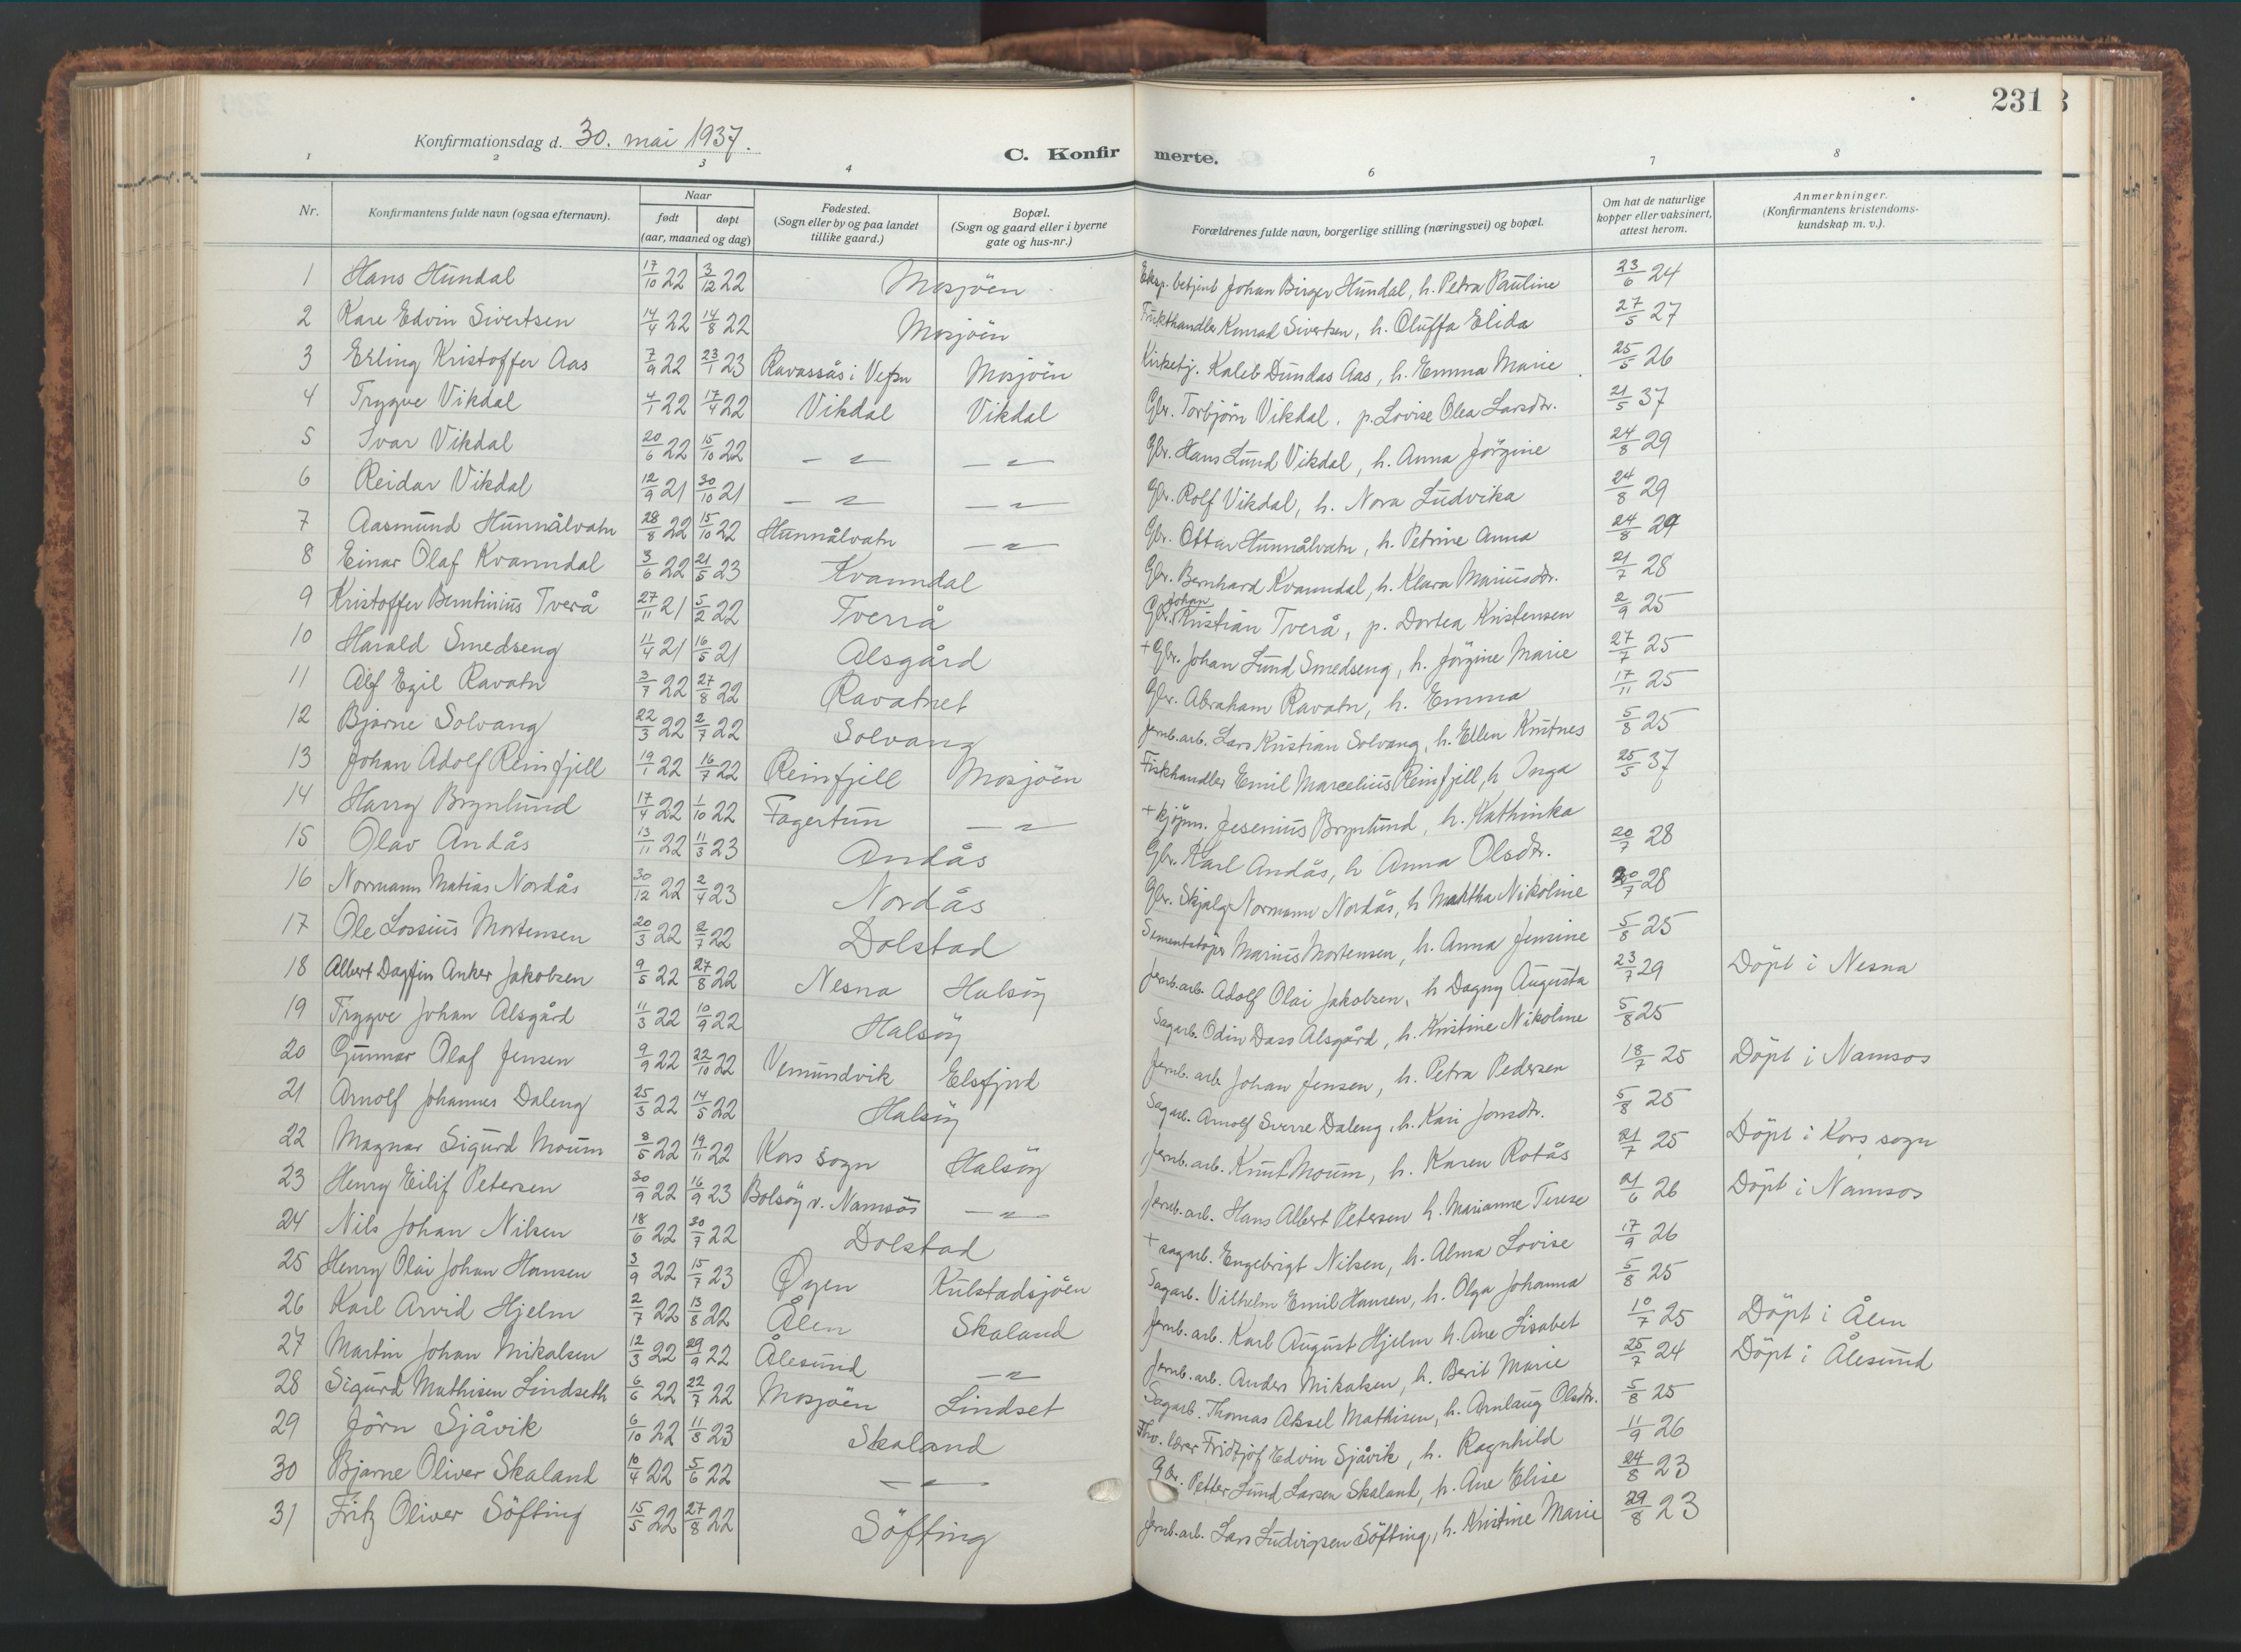 231
Konfirmationsdag d. 30. mai 1937.
C. Konfirmerte.
1 2 3 4 6 7 8
Nr. | Konfirmantens fulde navn (ogsaa efternavn). | Naar født døpt (aar, maaned og dag) | Fødested. (Sogn eller by og paa landet tillike gaard.) | Bopæl. (Sogn og gaard eller i byerne gate og hus-nr.) | Forældrenes fulde navn, borgerlige stilling (næringsvei) og bopæl. | Om hat de naturlige kopper eller vaksinert, attest herom. | Anmerkninger. (Konfirmantens kristendomskundskap m. v.).
1 Hans Hundal 17/10 22 3/12 22 Mosjöen Eksp. betjent Johan Birger Hundal, h. Petra Pauline 23/6 24
2 Kare Edvin Sivertsen 14/4 22 14/8 22 Mosjöen Frukthandler Konrad Sivertsen, h. Oluffa Elida 27/5 27
3 Erling Kristoffer Aas 7/9 22 23/1 23 Ravassås i Vefsn Mosjöen Kirketj. Kaleb Dundas Aas, h. Emma Marie 25/5 26
4 Trygve Vikdal 4/1 22 17/4 22 Vikdal Vikdal Gbr. Torbjörn Vikdal. p. Lovise Olea Larsdtr. 21/5 37
5 Ivar Vikdal 20/6 22 15/10 22 — " — — " — Gbr. Hans Lund Vikdal, h. Anna Jörgine 24/8 29
6 Reidar Vikdal 12/9 21 30/10 21 — " — — " — Gbr. Rolf Vikdal, h. Nora Ludvika 24/8 29
7 Aasmund Hunnålvatn 28/8 22 15/10 22 Hunnålvatn — " — Gbr. Ottar Hunnålvatn, h. Petrine Anna 24/8 29
8 Einar Olaf Kvanndal 3/6 22 21/5 23 Kvanndal Gbr. Bernhard Kvanndal, h. Klara Mariusdtr. 21/7 28
9 Kristoffer Berntinius Tverå 27/11 21 5/2 22 Tverrå Gbr. Johan Kristian Tverå, p. Dortea Kristensen 2/9 25
10 Harald Smedseng 11/4 21 16/5 21 Alsgård + Gbr. Johan Lund Smedseng, h. Jörgine Marie 27/7 25
11 Alf Egil Ravatn 3/7 22 27/8 22 Ravatnet Gbr. Abraham Ravatn, h. Emma 17/11 25
12 Bjarne Solvang 22/3 22 2/7 22 Solvang Jernb.arb. Lars Kristian Solvang, h. Ellen Kristnes 5/8 25
13 Johan Adolf Reinfjell 19/1 22 16/7 22 Reinfjell Mosjöen Fiskhandler Emil Marcelius Reinfjell, h Inga 25/5 37
14 Harry Brynlund 17/4 22 1/10 22 Fagertun — " — + kjöpm. Jesenius Brynlund, h. Kathinka
15 Olav Andås 13/11 22 11/3 23 Andås Gbr. Karl Andås, h Anna Olsdtr. 20/7 28
16 Normann Matias Nordås 30/12 22 2/4 23 Nordås Gbr. Skjalg Normann Nordås, h Martha Nikoline 20/7 28
17 Ole Lossius Mortensen 20/3 22 2/7 22 Dolstad Sementstöper Marius Mortensen, h. Anna Jensine 5/8 25
18 Albert Dagfin Anker Jakobsen 9/5 22 27/8 22 Nesna Halsöy Jernb.arb. Adolf Olai Jakobsen, h Dagny Augusta 23/7 29 Döpt i Nesna
19 Trygve Johan Alsgård 11/3 22 10/9 22 Halsöy Sagarb. Odin Dass Alsgård, h. Kristine Nikoline 5/8 25
20 Gunnar Olaf Jensen 9/9 22 22/10 22 Vemundvik Elsfjord Jernb. arb. Johan Jensen, h. Petra Pedersen 18/7 25 Döpt i Namsos
21 Arnolf Johannes Daleng 25/3 22 14/5 22 Halsöy Sagarb. Arnolf Sverre Daleng, h. Kari Jonsdtr. 5/8 25
22 Magnar Sigurd Moum 8/5 22 19/11 22 Kors sogn Halsöy Jernb.arb. Knut Moum, h. Karen Rotås 21/7 25 Döpt i Kors sogn
23 Henry Eilif Petersen 30/9 22 16/9 23 Bolsöy v. Namsos — " — Jernb.arb. Hans Albert Petersen h. Marianne Terese 21/6 26 Döpt i Namsos
24 Nils Johan Nilsen 18/6 22 30/7 22 Dolstad + sagarb. Engebrigt Nilsen, h. Alma Lovise 17/9 26
25 Henry Olai Johan Hansen 3/9 22 15/7 23 Øyen Kulstadsjöen Sagarb. Vilhelm Emil Hansen, h. Olga Johanna 5/8 25
26 Karl Arvid Hjelm 2/7 22 13/8 22 Ålen Skaland Jernb. arb. Karl August Hjelm h. Ane Lisabet 10/7 25 Döpt i Ålen
27 Martin Johan Mikalsen 12/3 22 29/9 22 Ålesund — " — Jernb. arb. Anders Mikalsen, h. Berit Marie 25/7 24 Döpt i Ålesund
28 Sigurd Mathisen Lindseth 6/6 22 22/7 22 Mosjöen Lindset Sagarb. Thomas Aksel Mathisen, h. Arnlaug Olsdtr. 5/8 25
29 Jörn Sjåvik 6/10 22 11/3 23 Skaland lærer Fridtjof Edvin Sjåvik, h. Ragnhild 11/9 26
30 Bjarne Oliver Skaland 10/4 22 5/6 22 — " — Gbr. Petter Lund Larsen Skaland, h. Ane Elise 24/8 23
31 Fritz Oliver Söfting 15/5 22 27/8 22 Söfting Jernb.arb. Lars Ludvigsen Söfting, h. Kristine Marie 29/8 23